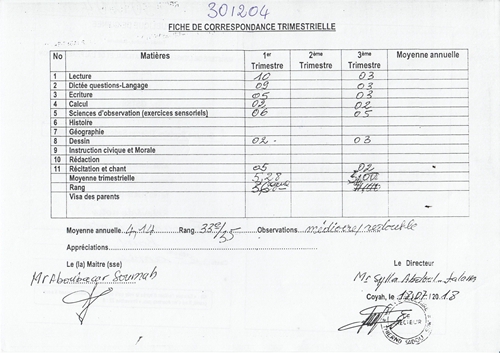 301204
FICHE DE CORRESPONDANCE TRIMESTRIELLE
No Matières 1er Trimestre 2ème Trimestre 3ème Trimestre Moyenne annuelle
1 Lecture 10 03
2 Dictée questions-Langage 09 03
3 Ecriture 05 03
4 Calcul 02 02
5 Sciences d'observation (exercices sensoriels) 06 05
6 Histoire
7 Géographie
8 Dessin 02 03
9 Instruction civique et Morale
10 Rédaction
11 Récitation et chant 05 02
Moyenne trimestrielle 5,28
Rang
Visa des parents
Moyenne annuelle 4,14 Rang 33e/35 Observations médiocre/redouble
Appréciations
Le (la) Maitre (sse) Le Directeur
Mr Aboubacar Soumah Mr Sylla
Coyah, le 17/07/2018